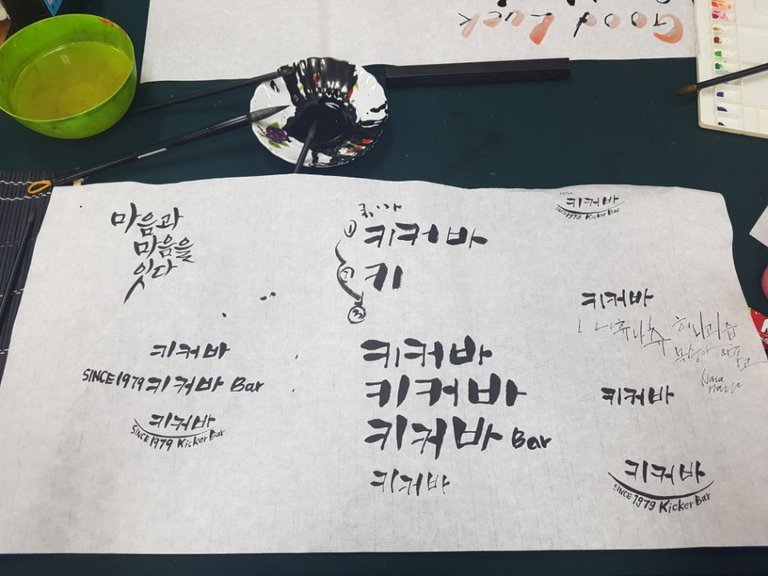 Good Luck
마음과
마음을
잇다
키커바
SINCE 1979 키커바 Bar
키커바
SINCE 1979 Kicker Bar
① 키커바
② 키
③
키커바
키커바
키커바 Bar
키커바
키커바
SINCE 1979 Kicker Bar
키커바
키커바
키커바
SINCE 1979 Kicker Bar